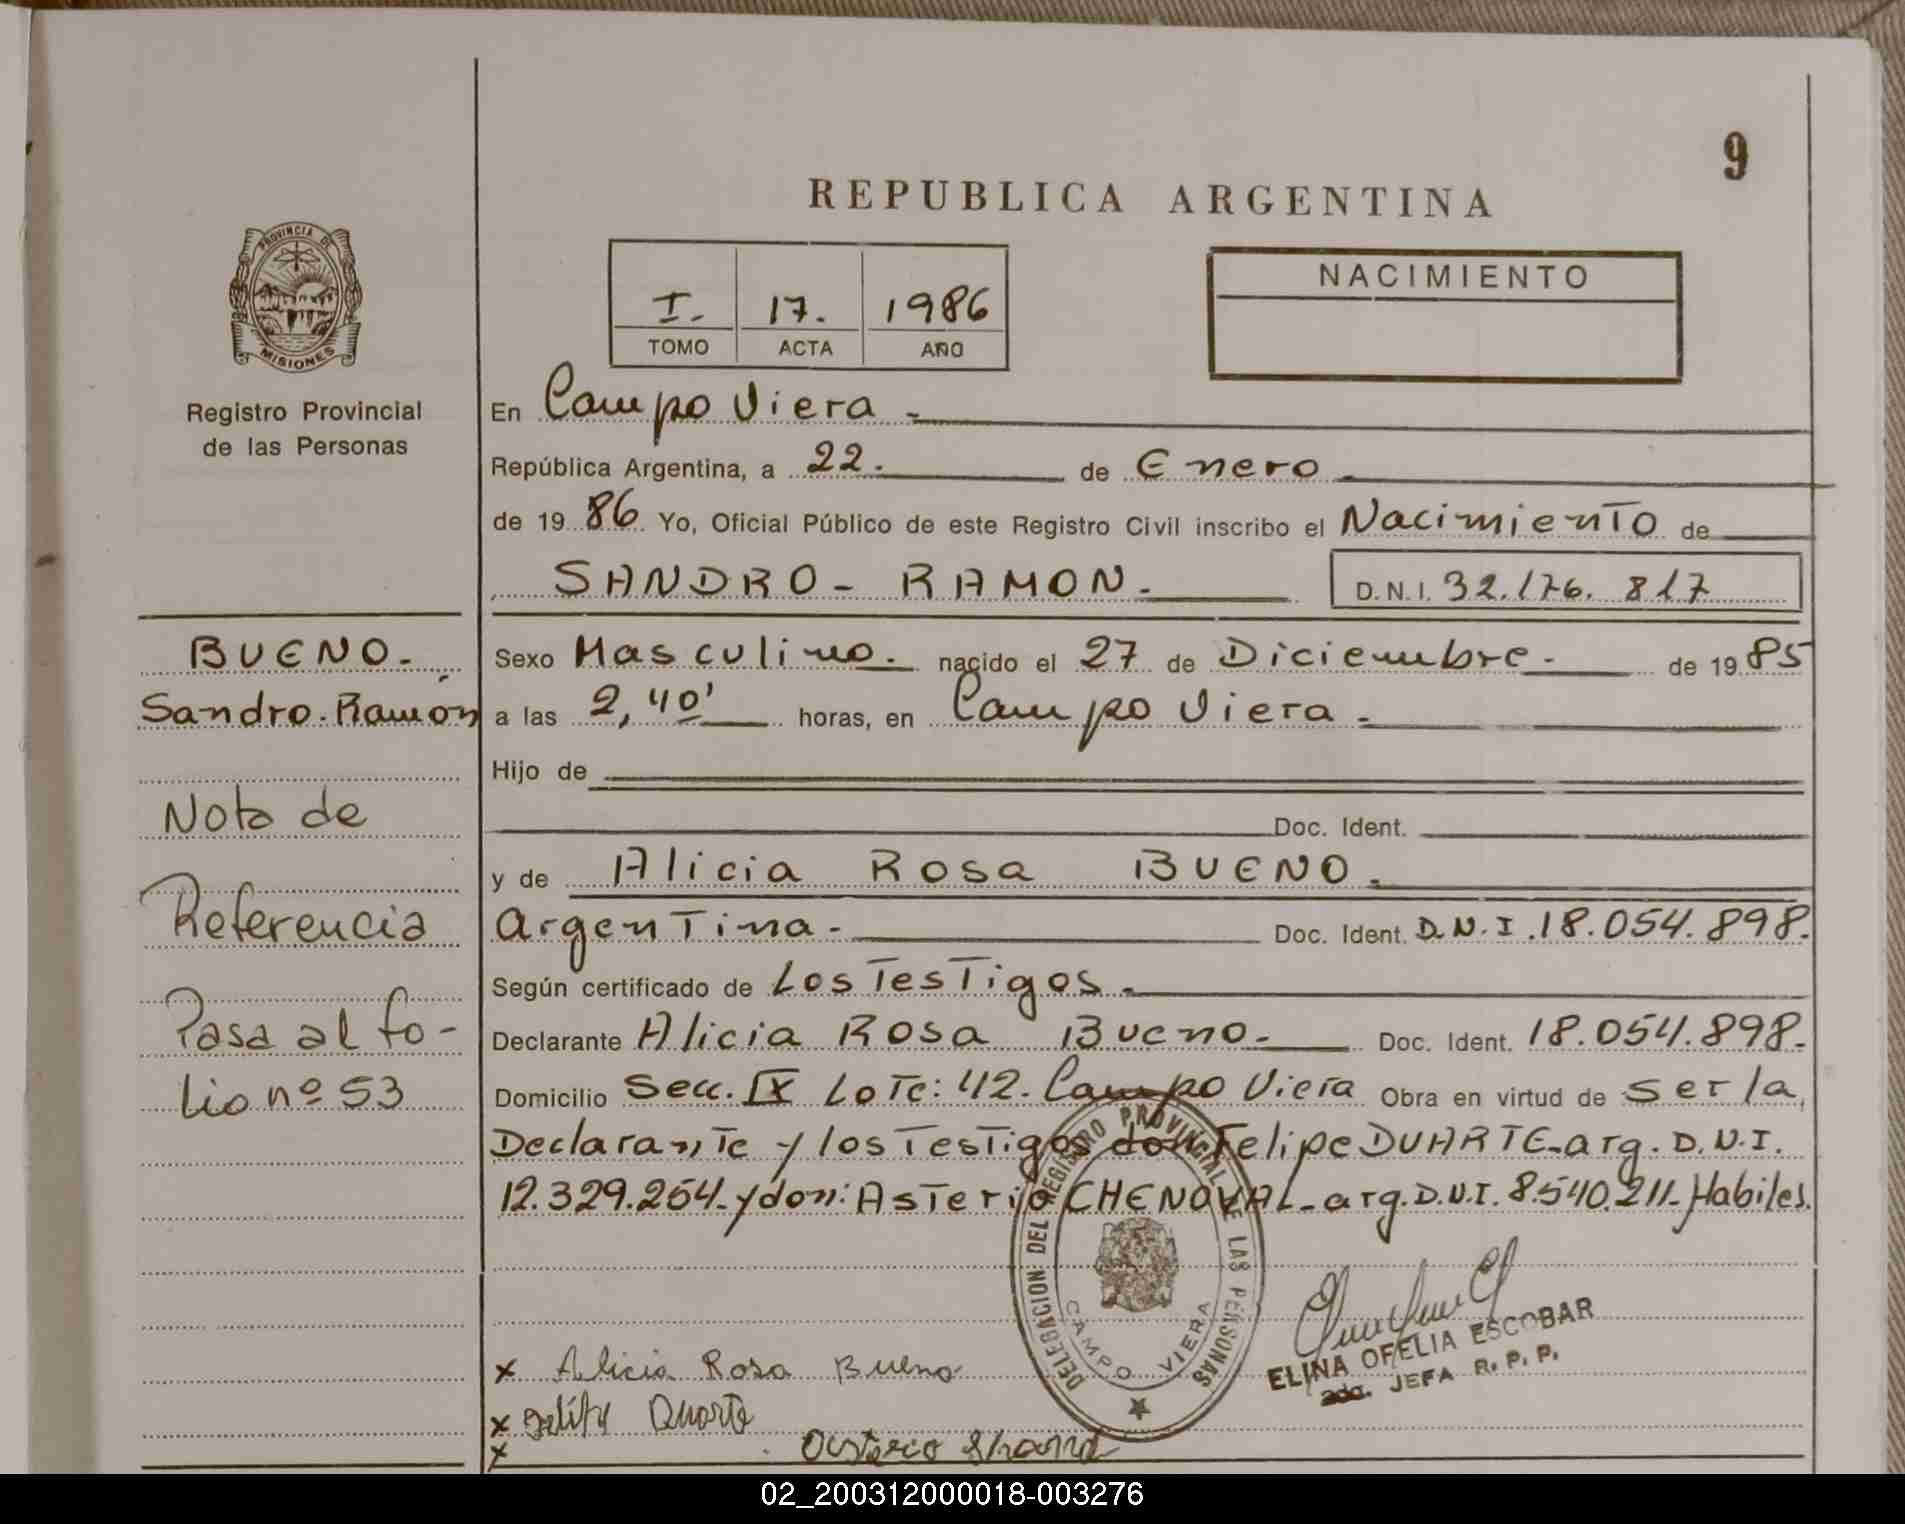 9
REPUBLICA ARGENTINA
PROVINCIA DE
MISIONES
Registro Provincial
de las Personas
I. 17. 1986
TOMO ACTA AÑO
NACIMIENTO
En Campo Viera -
República Argentina, a 22. de Enero
de 19 86 Yo, Oficial Público de este Registro Civil inscribo el Nacimiento de
SANDRO - RAMON. D.N.I. 32.176.817
BUENO.
Sandro. Ramón
Sexo Masculino. nacido el 27 de Diciembre. de 19 85
a las 2,40' horas, en Campo Viera.
Hijo de
Doc. Ident.
y de Alicia Rosa BUENO.
Argentina. Doc. Ident. D.N.I. 18.054.898.
Según certificado de Los Testigos.
Declarante Alicia Rosa Bueno. Doc. Ident. 18.054.898.
Domicilio Secc. IX Lote: 42. Campo Viera Obra en virtud de ser la
Declarante y los Testigos don Felipe DUARTE-arg. D.N.I.
12.329.254-y don: Asterio CHENOVAL-arg. D.N.I. 8.540.211-Habiles.
Nota de
Referencia
Pasa al fo-
lio nº 53
DELEGACION DEL REGISTRO PROVINCIAL DE LAS PERSONAS
CAMPO VIERA
ELINA OFELIA ESCOBAR
2da. JEFA R. P. P.
x Alicia Rosa Bueno
x Duarte
x
02_200312000018-003276